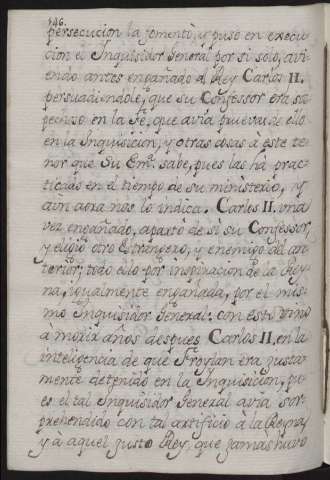 146.
persecucion la fomentò, y puso en execu-
cion el Inquisidor General por si solo, avi-
endo antes engañado al Rey Carlos II.
persuadiendole, que su Confessor era sos
pechoso en la Fè, que avia pruevas de ello
en la Inquisicion, y otras cosas à este te-
nor que Su Em.ª sabe, pues las ha prac-
ticado en el tiempo de su ministerio, y
aùn aora nos lo indica. Carlos II. una
vez engañado, apartò de si su Confessor,
y eligiò otro Estrangero, y enemigo del an-
terior; todo ello por inspiracion de la Rey-
na, igualmente engañada, por el mis-
mo Inquisidor General: con esto vino
à morir años despues Carlos II. en la
inteligencia de que Froylan era justa-
mente detenido en la Inquisicion, pu-
es el tal Inquisidor General avia sor-
prehendido con tal artificio à la Reyna,
y à aquel justo Rey, que jamàs huvo